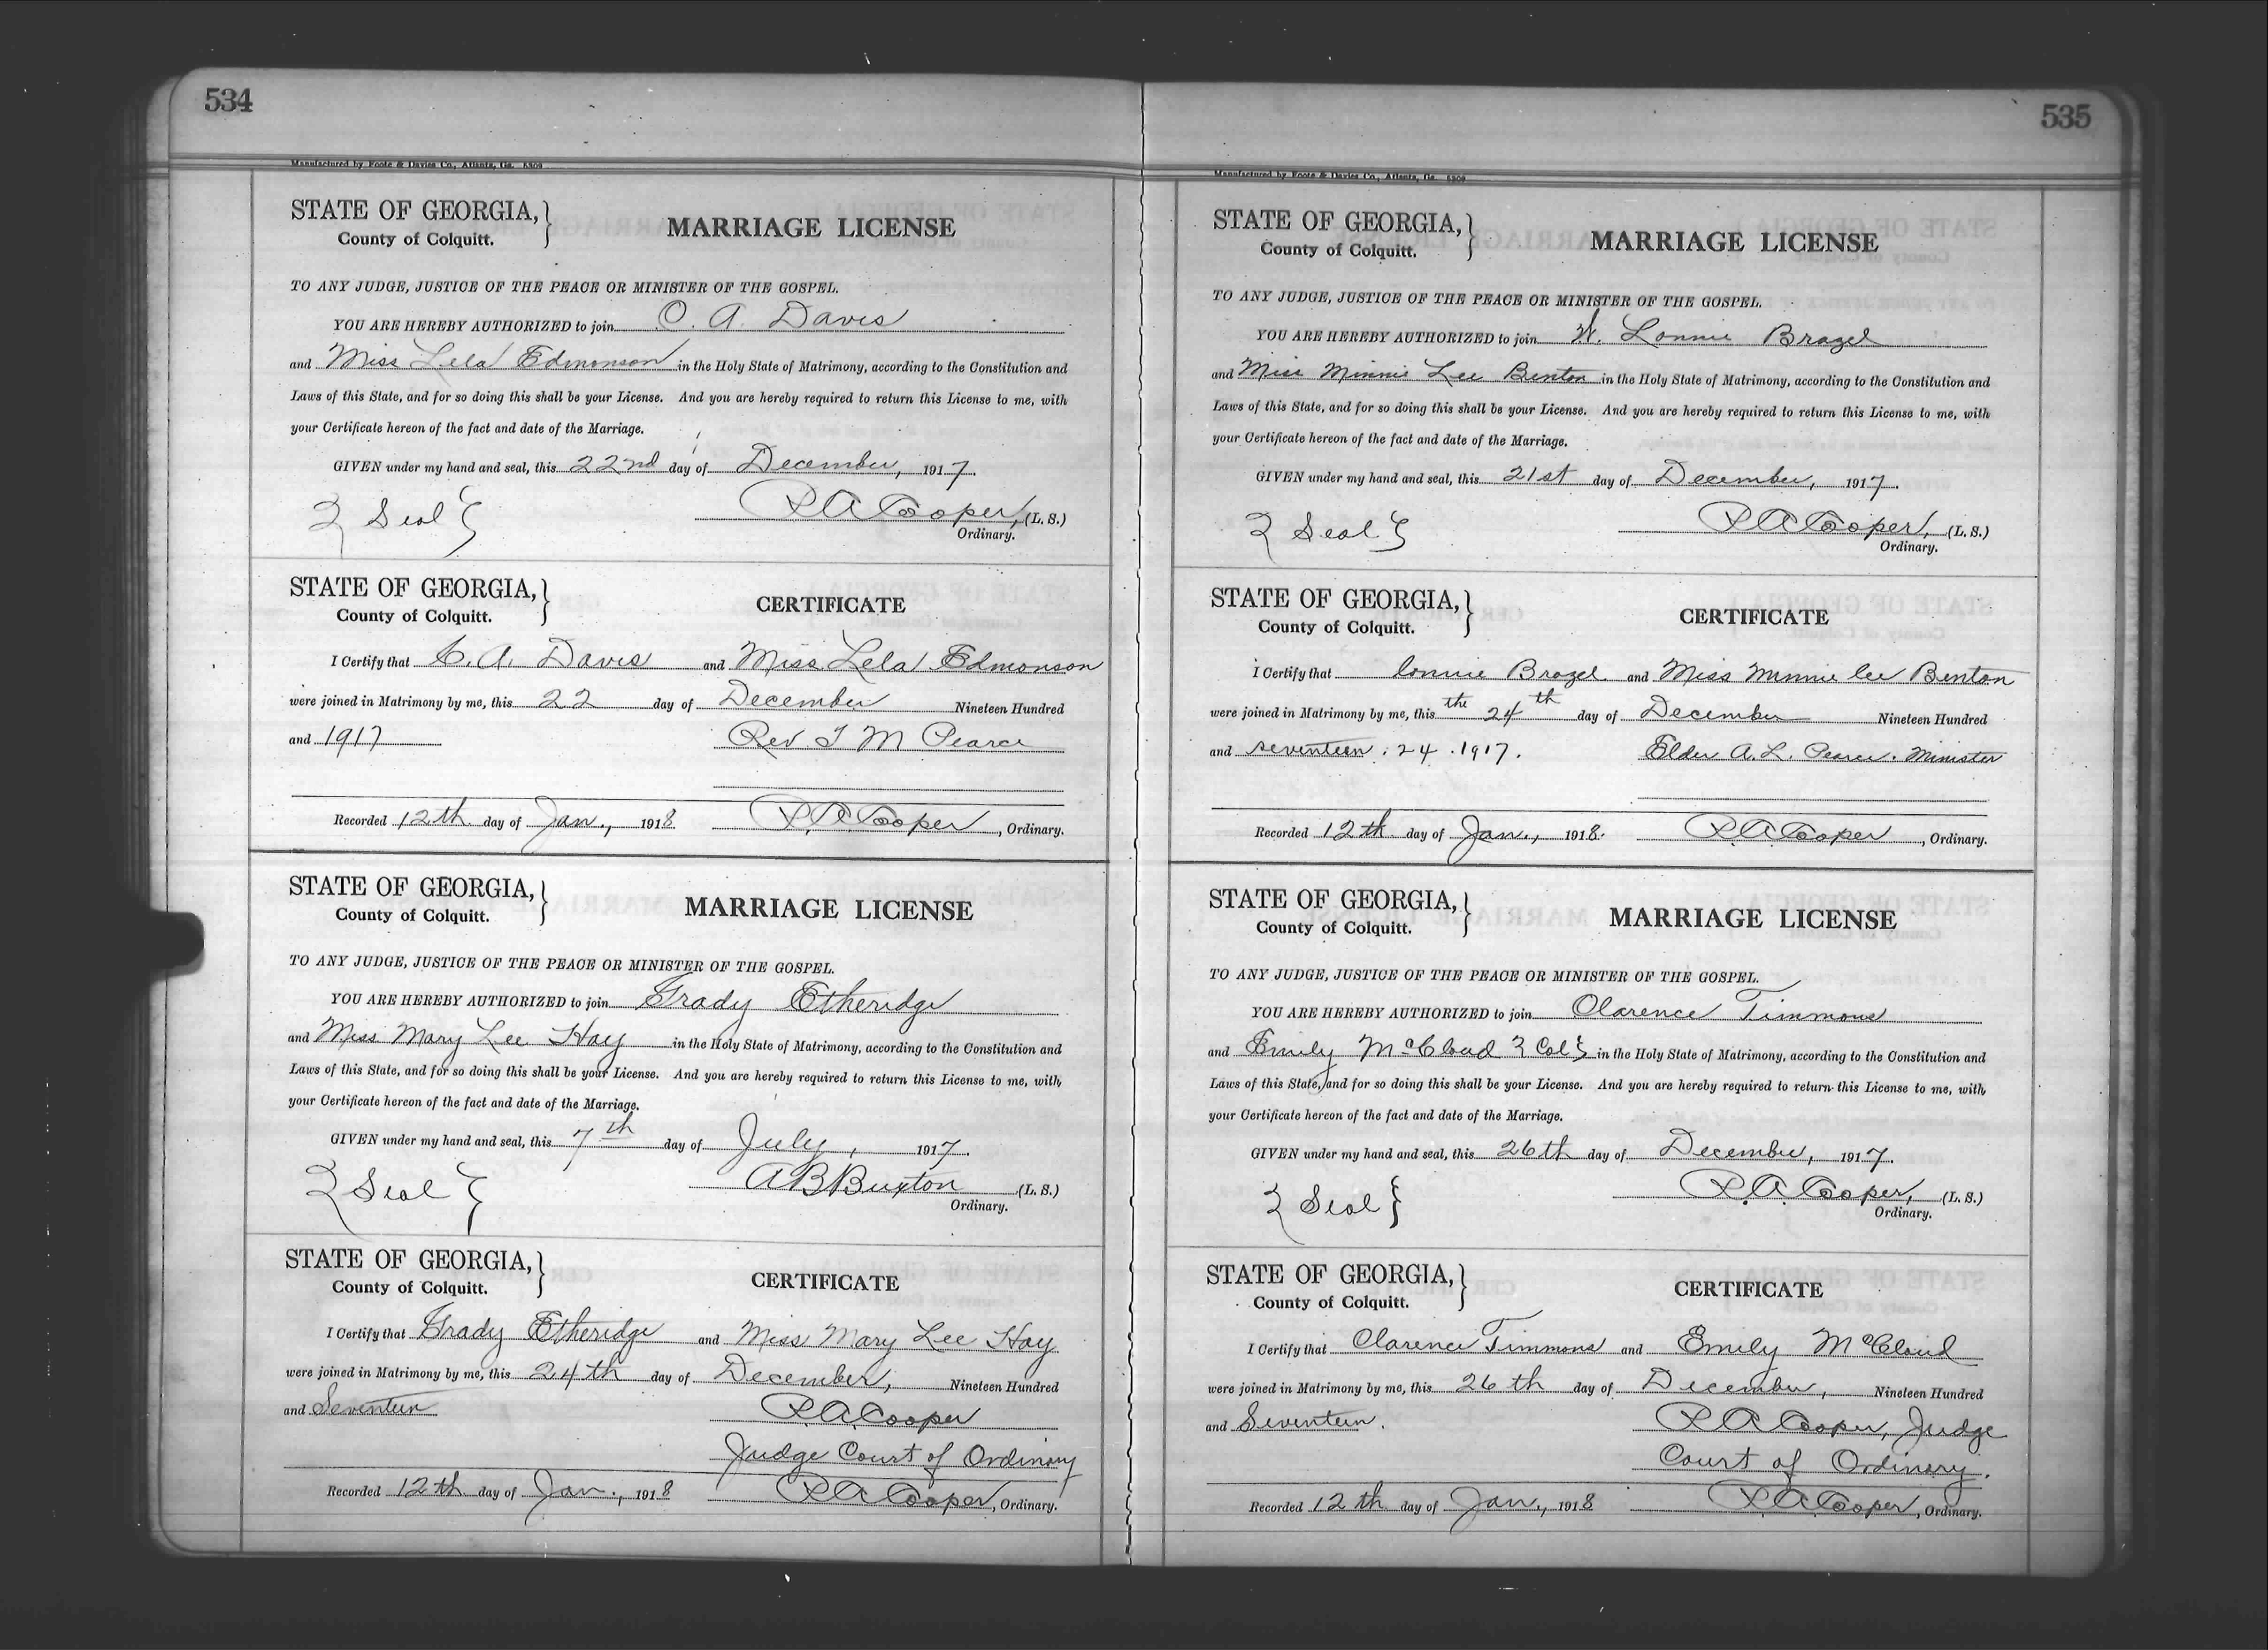 534
Manufactured by Foote & Davies Co., Atlanta, Ga. 5309
STATE OF GEORGIA,
County of Colquitt.
MARRIAGE LICENSE
TO ANY JUDGE, JUSTICE OF THE PEACE OR MINISTER OF THE GOSPEL.
YOU ARE HEREBY AUTHORIZED to join O. A. Davis
and Miss Lela Edmonson in the Holy State of Matrimony, according to the Constitution and
Laws of this State, and for so doing this shall be your License. And you are hereby required to return this License to me, with
your Certificate hereon of the fact and date of the Marriage.
GIVEN under my hand and seal, this 22nd day of December, 1917.
{Seal} P.A. Cooper, (L. S.)
Ordinary.
STATE OF GEORGIA,
County of Colquitt.
CERTIFICATE
I Certify that C. A. Davis and Miss Lela Edmonson
were joined in Matrimony by me, this 22 day of December Nineteen Hundred
and 1917 Rev T M Pearce
Recorded 12th day of Jan., 1918 P.A. Cooper, Ordinary.
STATE OF GEORGIA,
County of Colquitt.
MARRIAGE LICENSE
TO ANY JUDGE, JUSTICE OF THE PEACE OR MINISTER OF THE GOSPEL.
YOU ARE HEREBY AUTHORIZED to join Grady Etheridge
and Miss Mary Lee Hay in the Holy State of Matrimony, according to the Constitution and
Laws of this State, and for so doing this shall be your License. And you are hereby required to return this License to me, with
your Certificate hereon of the fact and date of the Marriage.
GIVEN under my hand and seal, this 7th day of July, 1917.
{Seal} A B Buxton (L. S.)
Ordinary.
STATE OF GEORGIA,
County of Colquitt.
CERTIFICATE
I Certify that Grady Etheridge and Miss Mary Lee Hay
were joined in Matrimony by me, this 24th day of December, Nineteen Hundred
and Seventeen P.A. Cooper
Judge Court of Ordinary
Recorded 12th day of Jan., 1918 P.A. Cooper, Ordinary.
535
Manufactured by Foote & Davies Co., Atlanta, Ga. 5309
STATE OF GEORGIA,
County of Colquitt.
MARRIAGE LICENSE
TO ANY JUDGE, JUSTICE OF THE PEACE OR MINISTER OF THE GOSPEL.
YOU ARE HEREBY AUTHORIZED to join W. Lonnie Brazel
and Miss Minnie Lee Benton in the Holy State of Matrimony, according to the Constitution and
Laws of this State, and for so doing this shall be your License. And you are hereby required to return this License to me, with
your Certificate hereon of the fact and date of the Marriage.
GIVEN under my hand and seal, this 21st day of December, 1917.
{Seal} P.A. Cooper, (L. S.)
Ordinary.
STATE OF GEORGIA,
County of Colquitt.
CERTIFICATE
I Certify that Lonnie Brazel and Miss Minnie Lee Benton
were joined in Matrimony by me, this the 24th day of December Nineteen Hundred
and seventeen . 24 . 1917. Elder A. L. Pearce. Minister
Recorded 12th day of Jan., 1918. P.A. Cooper, Ordinary.
STATE OF GEORGIA,
County of Colquitt.
MARRIAGE LICENSE
TO ANY JUDGE, JUSTICE OF THE PEACE OR MINISTER OF THE GOSPEL.
YOU ARE HEREBY AUTHORIZED to join Clarence Timmons
and Emily McCloud {Col} in the Holy State of Matrimony, according to the Constitution and
Laws of this State, and for so doing this shall be your License. And you are hereby required to return this License to me, with
your Certificate hereon of the fact and date of the Marriage.
GIVEN under my hand and seal, this 26th day of December, 1917.
{Seal} P.A. Cooper, (L. S.)
Ordinary.
STATE OF GEORGIA,
County of Colquitt.
CERTIFICATE
I Certify that Clarence Timmons and Emily McCloud
were joined in Matrimony by me, this 26th day of December, Nineteen Hundred
and Seventeen. P.A. Cooper, Judge
Court of Ordinery.
Recorded 12th day of Jan., 1918 P.A. Cooper, Ordinary.